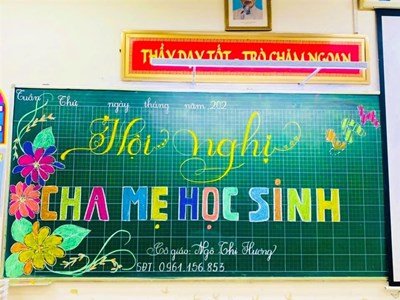 THẦY DẠY TỐT - TRÒ CHĂM NGOAN
Tuần Thứ ngày tháng năm 202
Hội nghị
CHA MẸ HỌC SINH
Cô giáo: Ngô Thị Hương
SĐT: 0961.156.853